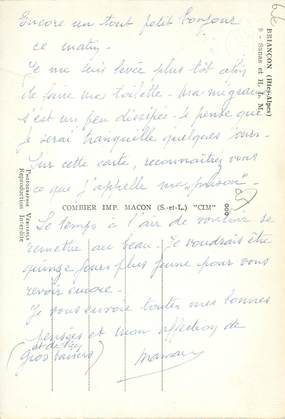 Encore un tout petit bonjour
ce matin.
Je me suis levée plus tôt afin
de faire ma toilette. Ma migraine
s'est un peu dissipée. Je pense que
je serai tranquille quelques jours.
Sur cette carte, reconnaîtrez vous
ce que j'appelle ma "prison"
Le temps a l'air de vouloir se
remettre au beau. Je voudrais être
quinze jours plus jeune pour vous
revoir encore.
Je vous envoie toutes mes bonnes
pensées et mon affection de
maman
(et de très
gros baisers)
BRIANÇON (Htes-Alpes)
9 - Sanas et H. L. M.
COMBIER IMP. MACON (S.-et-L.) "CIM"
Reproduction Interdite